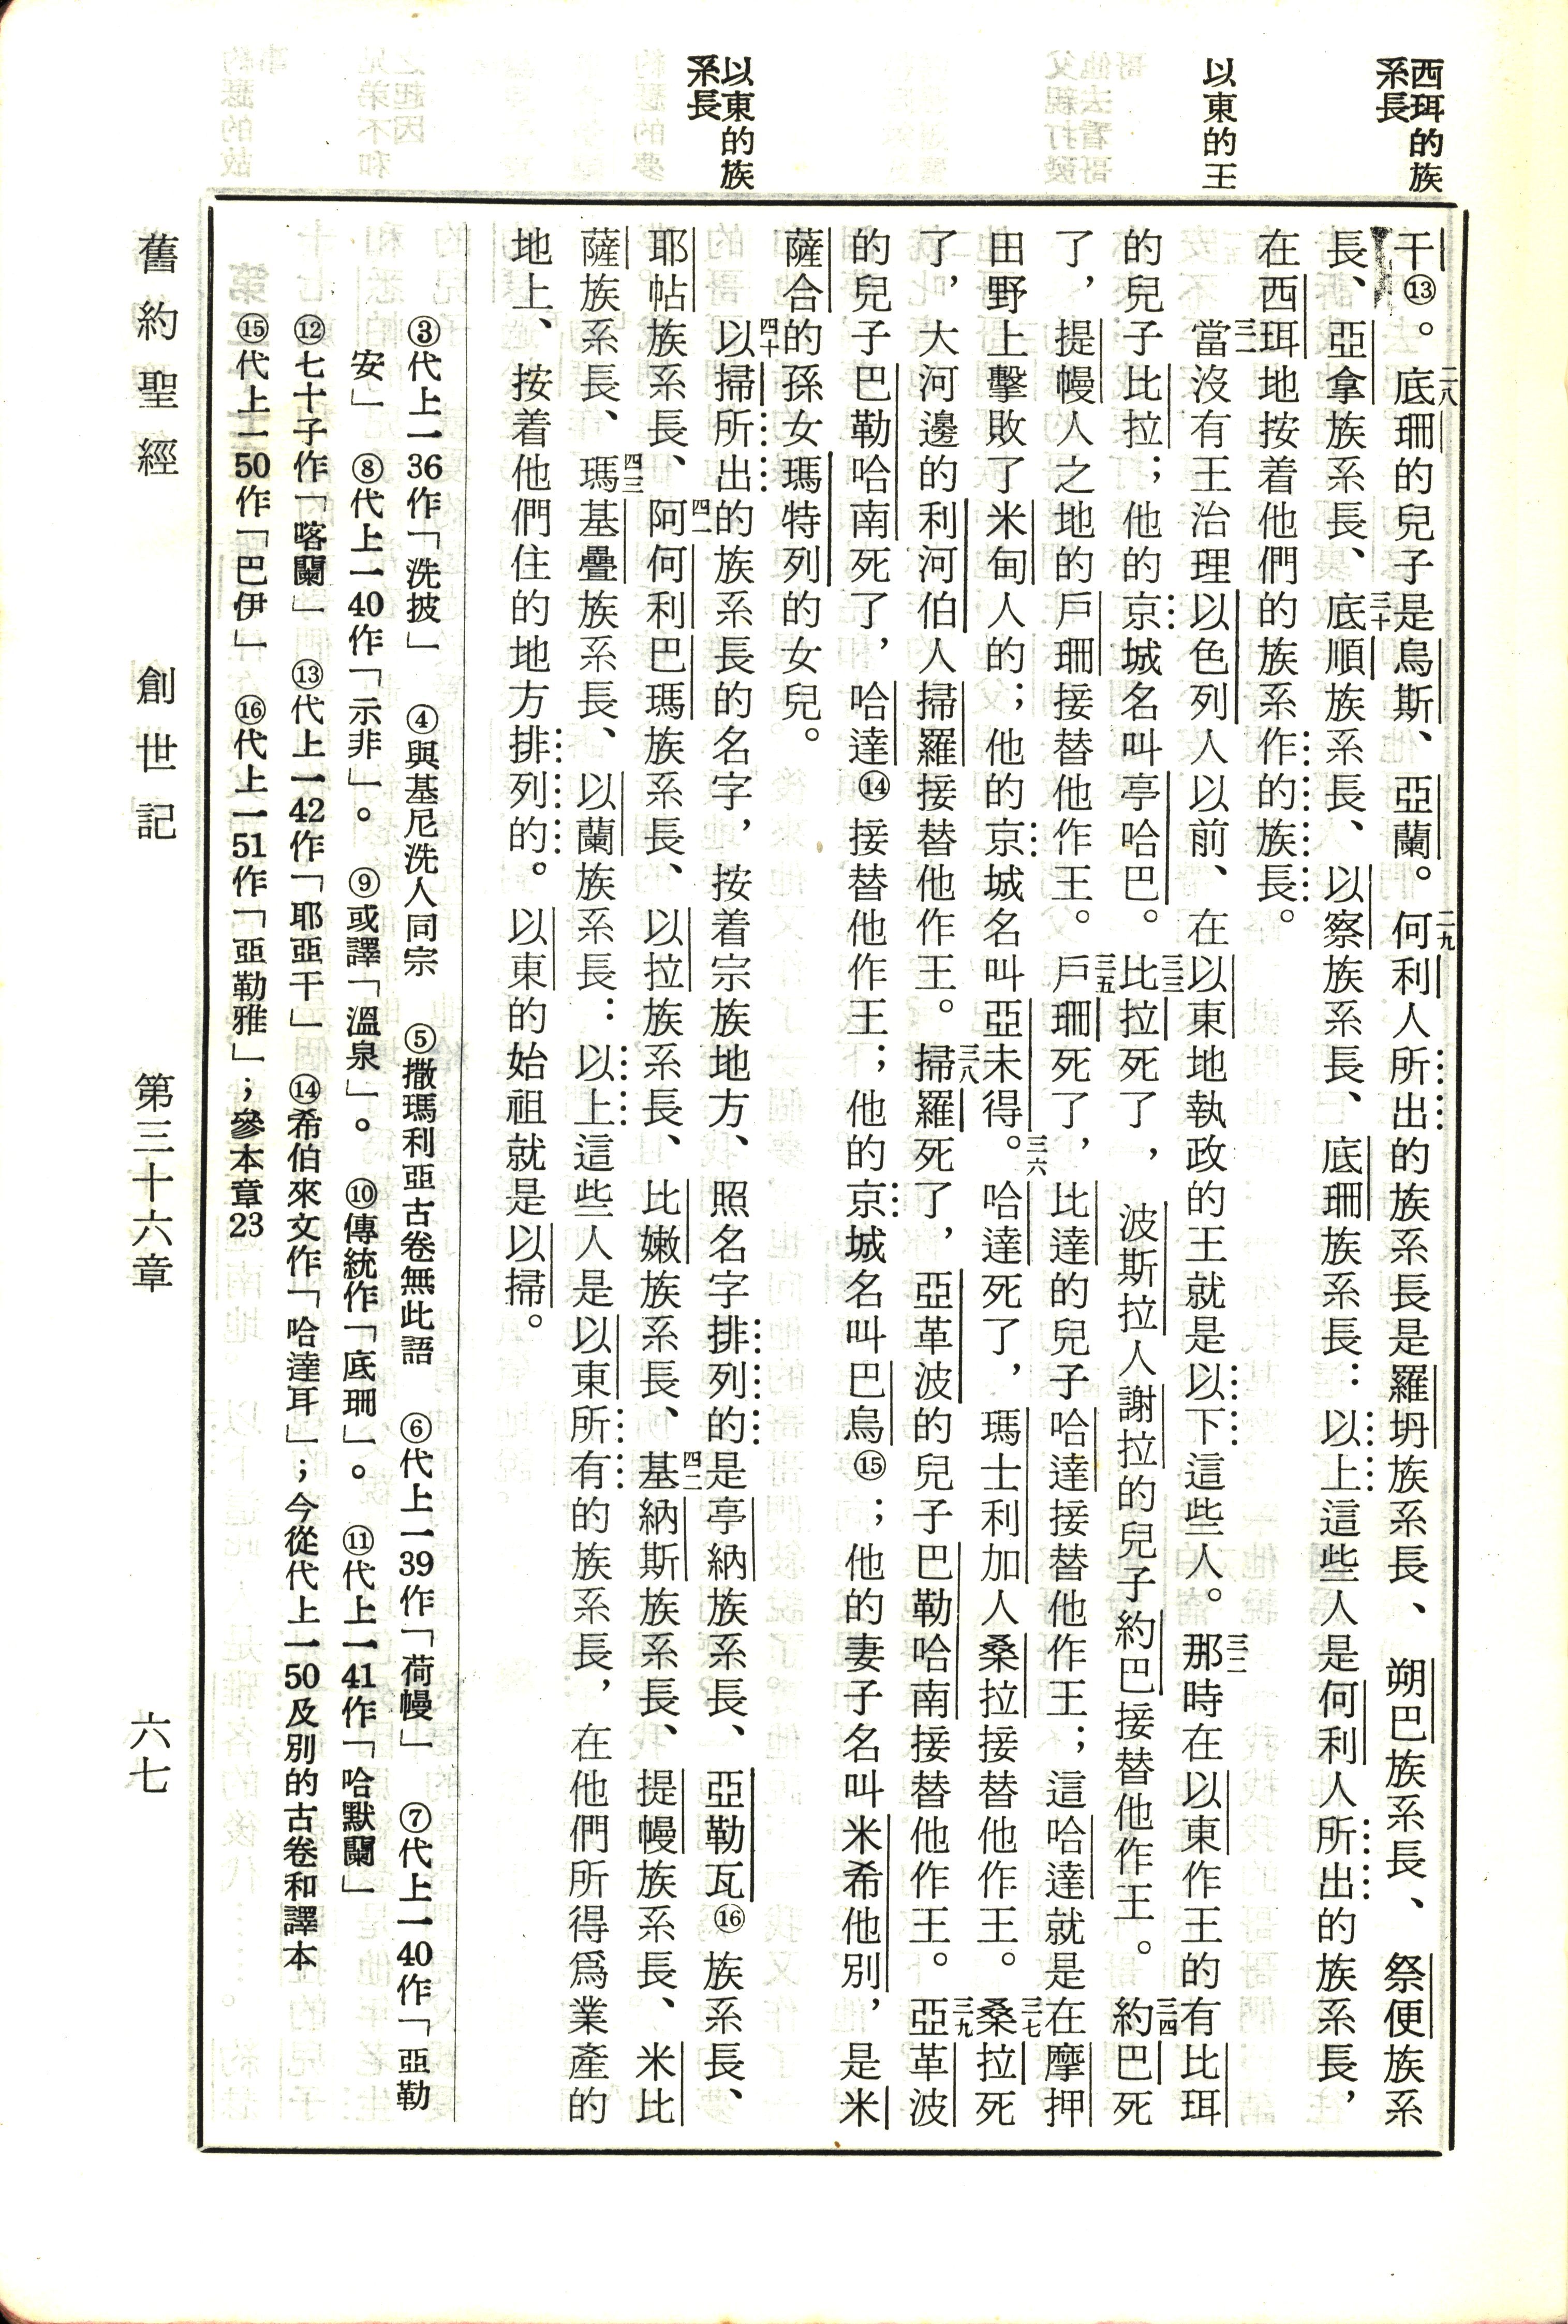 西珥的族
系長
以東的王
以東的族
系長
干⑬。二八底珊的兒子是烏斯、亞蘭。二九何利人所出的族系長是羅坍族系長、朔巴族系長、祭便族系
長、亞拿族系長、三十底順族系長、以察族系長、底珊族系長：以上這些人是何利人所出的族系長，
在西珥地按着他們的族系作的族長。
三一當沒有王治理以色列人以前、在以東地執政的王就是以下這些人。三二那時在以東作王的有比珥
的兒子比拉；他的京城名叫亭哈巴。三三比拉死了，波斯拉人謝拉的兒子約巴接替他作王。三四約巴死
了，提幔人之地的戶珊接替他作王。三五戶珊死了，比達的兒子哈達接替他作王；這哈達就是在摩押
田野上擊敗了米甸人的；他的京城名叫亞未得。三六哈達死了，瑪士利加人桑拉接替他作王。三七桑拉死
了，大河邊的利河伯人掃羅接替他作王。三八掃羅死了，亞革波的兒子巴勒哈南接替他作王。三九亞革波
的兒子巴勒哈南死了，哈達⑭接替他作王；他的京城名叫巴烏⑮；他的妻子名叫米希他別，是米
薩合的孫女瑪特列的女兒。
四十以掃所出的族系長的名字，按着宗族地方、照名字排列的是亭納族系長、亞勒瓦⑯族系長、
耶帖族系長、四一阿何利巴瑪族系長、以拉族系長、比嫩族系長、四二基納斯族系長、提幔族系長、米比
薩族系長、四三瑪基疊族系長、以蘭族系長：以上這些人是以東所有的族系長，在他們所得爲業產的
地上、按着他們住的地方排列的。以東的始祖就是以掃。
③代上一36作「洗披」 ④與基尼洗人同宗 ⑤撒瑪利亞古卷無此語 ⑥代上一39作「荷幔」 ⑦代上一40作「亞勒
安」 ⑧代上一40作「示非」。 ⑨或譯「溫泉」。 ⑩傳統作「底珊」。 ⑪代上一41作「哈默蘭」
⑫七十子作「喀蘭」 ⑬代上一42作「耶亞干」 ⑭希伯來文作「哈達耳」；今從代上一50及別的古卷和譯本
⑮代上一50作「巴伊」 ⑯代上一51作「亞勒雅」；參本章23
舊約聖經 創世記 第三十六章 六七